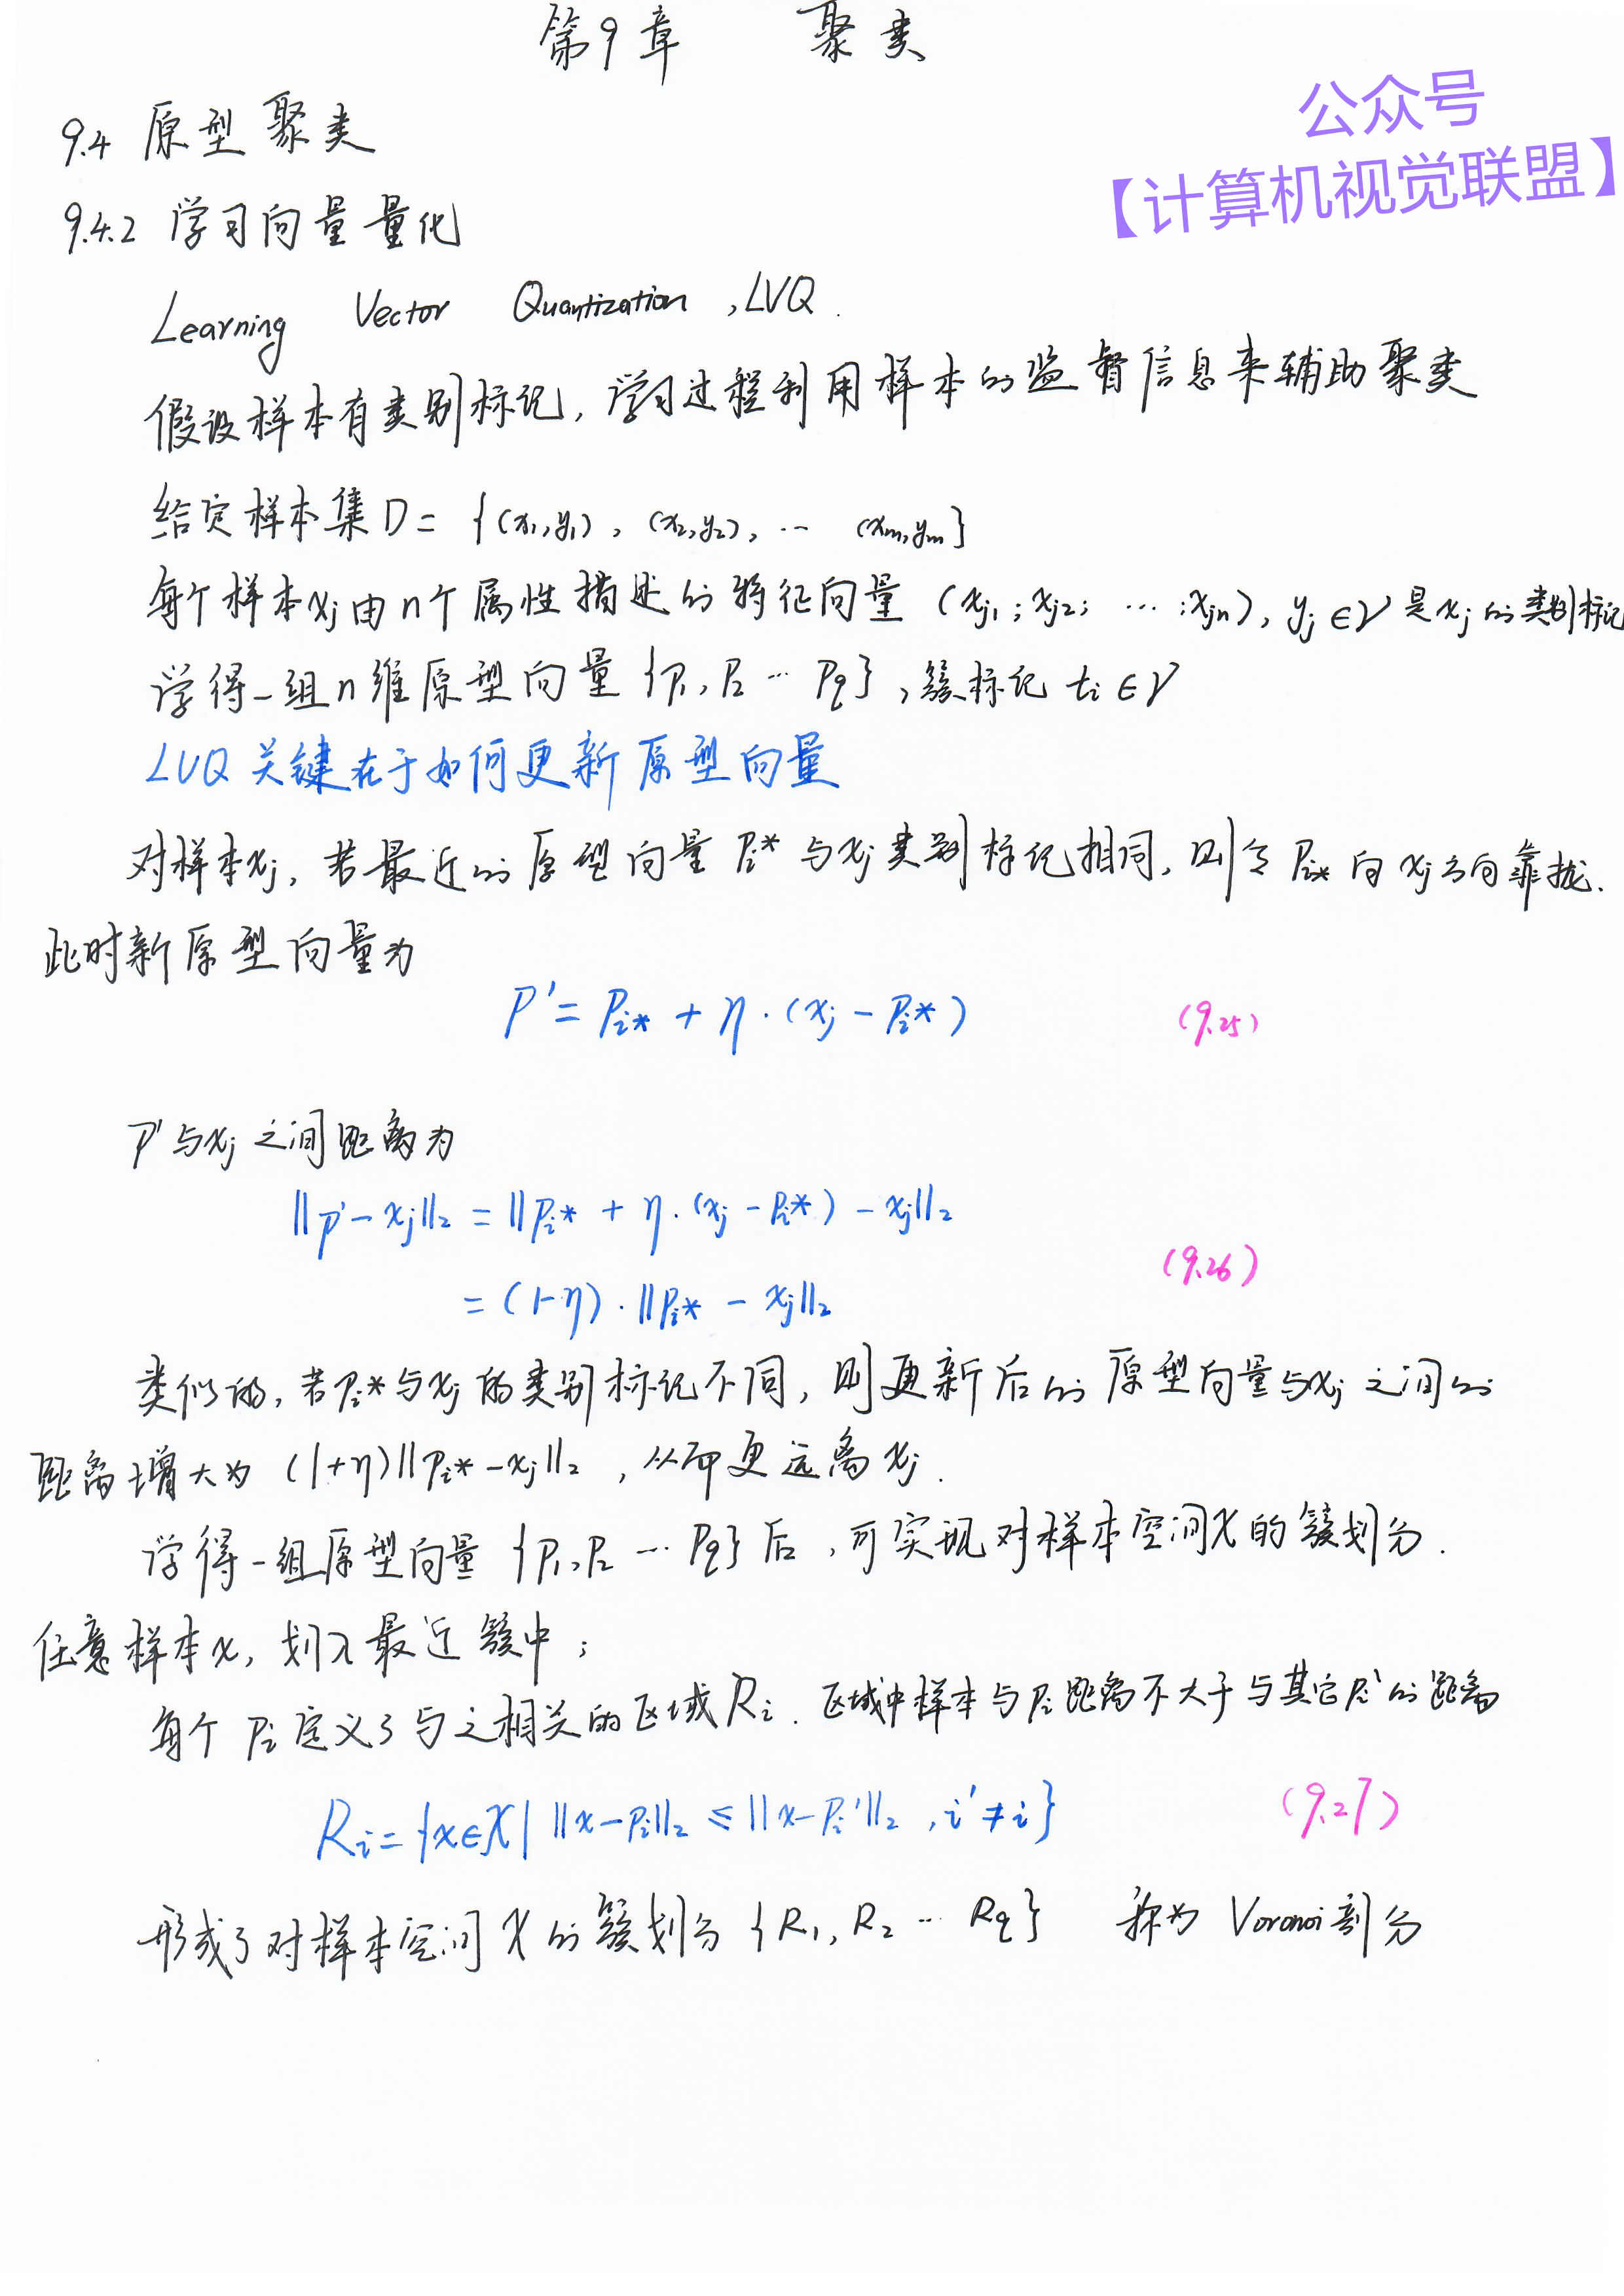 第9章 聚类
公众号
【计算机视觉联盟】
9.4 原型聚类
9.4.2 学习向量量化
Learning Vector Quantization ,LVQ.
假设样本有类别标记,学习过程利用样本的监督信息来辅助聚类
给定样本集D= {(x₁,y₁), (x₂,y₂), … (xₘ,yₘ}
每个样本xⱼ由n个属性描述的特征向量 (xⱼ₁;xⱼ₂; …;xⱼₙ), yⱼ∈𝒴 是xⱼ的类别标记
学得一组n维原型向量 {P₁,P₂ … P_q},簇标记 tᵢ∈𝒴
LVQ 关键在于如何更新原型向量
对样本xⱼ,若最近的原型向量 P_i* 与xⱼ类别标记相同,则令 P_i* 向 xⱼ方向靠拢.
此时新原型向量为
P'= P_i* + η·(xⱼ - P_i*) (9.25)
P'与xⱼ之间距离为
||P'-xⱼ||₂ = ||P_i* + η·(xⱼ - P_i*) - xⱼ||₂
= (1-η)·||P_i* - xⱼ||₂ (9.26)
类似的,若P_i*与xⱼ的类别标记不同,则更新后的原型向量与xⱼ之间的
距离增大为 (1+η)||P_i*-xⱼ||₂ ,从而更远离 xⱼ.
学得一组原型向量 {P₁,P₂ … P_q}后,可实现对样本空间χ的簇划分.
任意样本x,划入最近簇中;
每个 Pᵢ定义了与之相关的区域Rᵢ. 区域中样本与Pᵢ距离不大于与其它Pᵢ'的距离
Rᵢ= {x∈χ| ||x-Pᵢ||₂ ≤ ||x-Pᵢ'||₂ ,i'≠i} (9.27)
形成了对样本空间χ的簇划分 {R₁, R₂ … R_q} 称为 Voronoi剖分